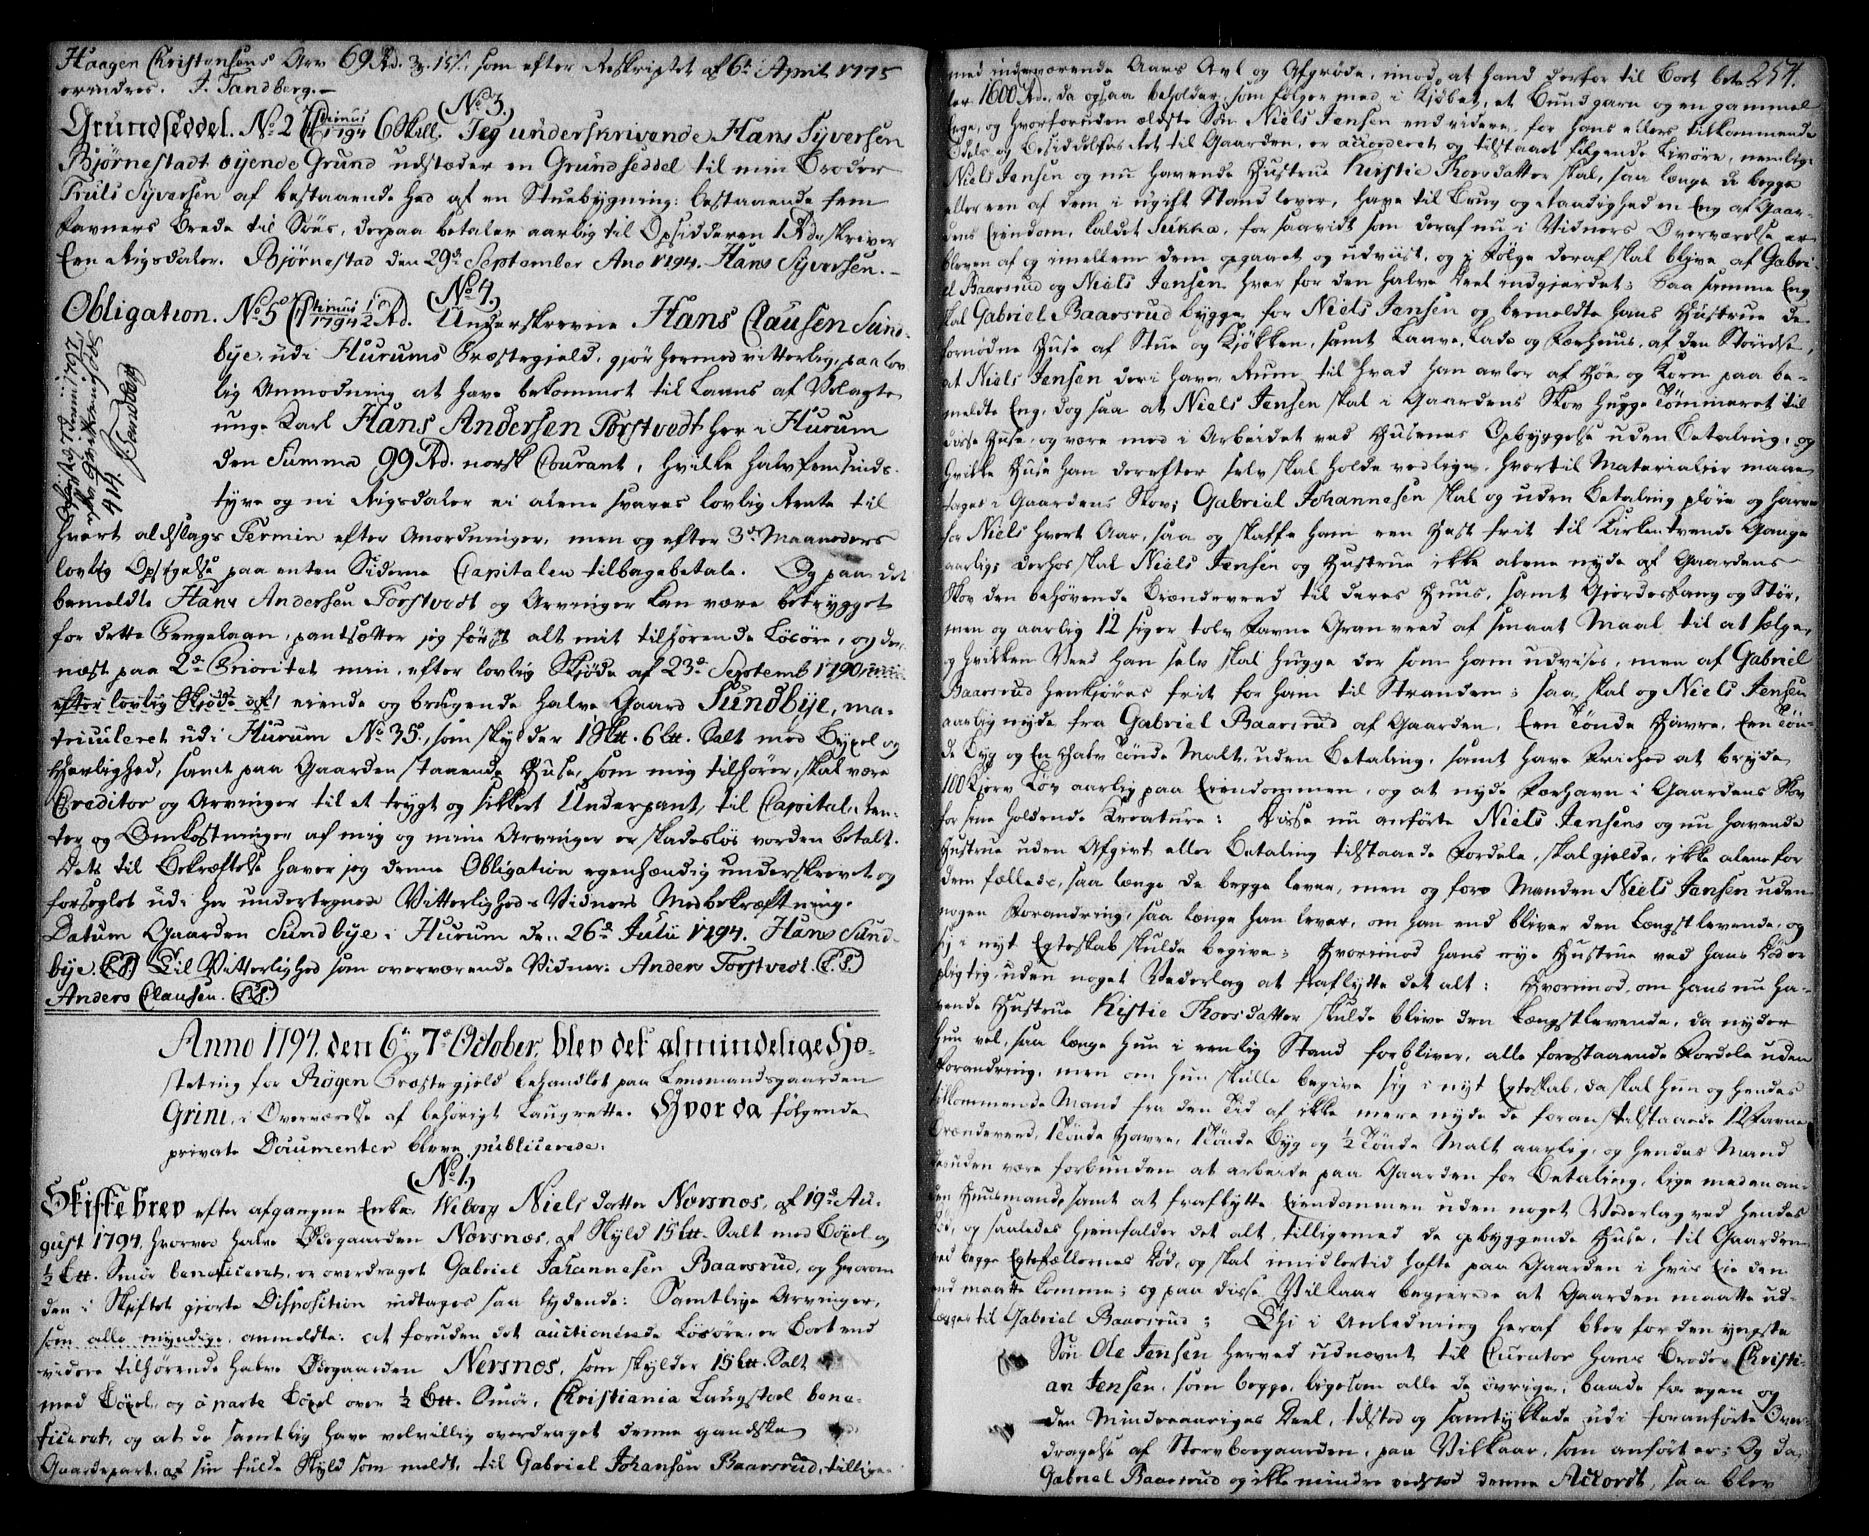 Haagen Christensens Arv 69 Rd. 3 . 15 s., som efter Reskriptet af 6te April 1775
erindres. J. Tandberg.
(No 3.)
Grundseddel. No 2 1794 6 Skill. Jeg underskrivende Hans Syversen
Bjørnestadt eyende Grund udstæder en Grundseddel til min Broder
Truls Syversen af bestaaende Hed af en Stuebygning: bestaaende fem
Favners Brede til Søes, derpaa betaler aarlig til Opsidderen 1 Rd. skriver
Een Rigsdaler. Bjørnestad den 29de September Ano 1794. Hans Syversen.
(No 4.)
Obligation. No 5 1794 1/2 Rd. Underskrevne Hans Clausen Sund-
bye, udi Hurums Præstegjeld, gjør hermed vitterlig, paa lov-
lig Anmodning at have bekommet til Laans af Velagte
unge Karl Hans Andersen Torstvedt her i Hurum
den Summa 99 Rd. norsk Courant, hvilke halvfemsinds-
tyve og ni Rigsdaler ei alene svares lovlig Rente til
hvert aldslags Termin efter Anordninger, men og efter 3de Maaneders
lovlig Opsigelse paa enten Siderne Capitalen tilbagebetale. Og paa det
bemeldte Hans Andersen Torstvedt og Arvinger kan være betrygget
for dette Pengelaan, pantsætter jeg først alt mit tilhørende Løsøre, og der-
næst paa 2de Prioritet min, efter lovlig Skjøde af 23de Septemb 1790
efter lovlig Skjøde af, eiende og brugende halve Gaard Sundbye, ma-
triculeret udi Hurum No 35, som skylder 1 Skt. 6 Ltt. Salt med Bygsel og
Herlighed, samt paa Gaarden staaende Huse, som mig tilhører, skal være
Creditor og Arvinger til et trygt og sikkert Underpant, til Capital, Ren-
ter og Omkostninger af mig og mine Arvinger er skadesløs vorden betalt.
Dets til Bekræftelse haver jeg denne Obligation egenhændig underskrevet og
forseglet udi her undertegnede Vitterligheds Vidners Medbekræftning.
Datum Gaarden Sundbye i Hurum den 26de Julii 1794. Hans Sund-
bye. (L.S.) Til Vitterlighed som overværende Vidner: Anders Torstvedt. (L.S.)
Anders Clausen. (L.S.)
Anno 1794. den 6te og 7de October, blev det almindelige Hø-
steting for Røgen Præstegjeld behandlet paa Lensmandsgaarden
Grini, i Overværelse af behørigt Laugrette. Hvor da følgende
private Documenter bleve publicerede:
(No 1.)
Skiftebrev efter afgangne Enke Wiborg Niels datter Nersnes, af 19de Au-
gust 1794, hvorved halve Ødegaarden Nersnes, af Skyld 15 Ltt. Salt med Bøxel og
1/2 Ltt. Smør beneficeret, er overdraget Gabriel Johannesen Baarsrud, og hvorom
den i Skiftet gjorte Disposition indtages saa lydende: Samtlige Arvinger,
som alle myndige, anmeldte: at foruden det auctionerede Løsøre, er Boet end
videre tilhørende halve Ødegaarden Nersnes, som skylder 15 Ltt. Salt
med Bøxel, og à parte Bøxel over 1/2 Ltt. Smør, Christiania Laugstoel bene-
ficeret, og at de samtlig have velvillig overdraget denne gandske
Gaardepart af sin fulde Skyld som meldt, til Gabriel Johansen Baarsrud, tillige-
254.
med indeværende Aars Avl og Afgrøde, imod at hand derfor til Boet beta-
ler 1600 Rd., da ogsaa beholder, som følger med i Kjøbet, et Bundgarn og en gammel
Pege, og hvorforuden ældste Søn Niels Jensen end videre, for hans ellers tilkommende
Odels og Besiddelses Ret til Gaarden, er accorderet og tilstaaet følgende Livøre, nemlig:
Niels Jensen og nu havende Hustrue Kirstie Thorsdatter skal, saa længe de begge
eller een af dem i ugift Stand lever, have til Brug og staadighed en Eng af Gaar-
dens Eiendom, kaldet Sukka, for saavidt som deraf nu i Vidners Overværelse er
bleven af og imellem dem opgaaet og udviist, og i Følge deraf skal blive af Gabri-
el Baarsrud og Niels Jensen hver for den halve Deel indgjerdet; Paa samme Eng
skal Gabriel Baarsrud bygge for Niels Jensen og bemeldte hans Hustrue de
fornødne Huse af Stue og Kjøkken, samt Lauve, Lade og Fæehuus, af den Størelse,
at Niels Jensen deri haver Rum til hvad han avler af Høe og Korn paa be-
meldte Eng, dog saa at Niels Jensen skal i Gaardens Skov hugge Tømmeret til
disse Huse, og være med i Arbeidet ved Husenes Opbyggelse uden Betaling, og
hvilke Huse han derefter selv skal holde vedlige, hvortil Materialier maae
tages i Gaardens Skov; Gabriel Johannesen skal og uden Betaling pløie og harve
for Niels hvert Aar, saa og skaffe ham een Hest frit til Kirken tvende Gange
aarlig; derhos skal Niels Jensen og Hustrue ikke alene nyde af Gaardens
Skov den behøvende Brændeved til deres Huus, samt Gjerdesfang og Stør,
men og aarlig 12 siger tolv Favne Granved af smaat Maal til at sælge,
og hvilken Ved han selv skal hugge der som ham udvises, men af Gabriel
Baarsrud henkjøres frit for ham til Stranden; saa skal og Niels Jensen
aarlig nyde fra Gabriel Baarsrud af Gaarden, Een Tønde Havre, Een Tøn-
de Byg og En halv Tønde Malt, uden Betaling, samt have Friehed at bryde
100 Kjerv Løv aarlig paa Eiendommen, og at nyde Fæehavn i Gaardens Skov
for sine holdende Kreature: Disse nu anførte Niels Jensens og nu havende
Hustrue uden Afgivt eller Betaling tilstaaede Fordele, skal gjelde, ikke alene for
dem fælleds, saa længe de begge leve, men og for Manden Niels Jensen uden
nogen Forandring, saa længe han lever, om han end bliver den Længstlevende, og
sig i nyt Egteskab skulde begive; hvorimod hans nye Hustrue ved hans Død er
pligtig, uden noget Vederlag at fraflytte det alt: Hvorimod, om hans nu ha-
vende Hustrue Kirstie Thorsdatter skulde blive den Længstlevende, da nyder
hun vel, saa længe hun i eenlig Stand forbliver, alle forestaaende Fordele uden
Forandring, men om hun skulle begive sig i nyt Egteskab, da skal hun og hendes
tilkommende Mand fra den Tid af ikke mere nyde de foran tilstaaede 12 Favne
Brændeved, 1 Tønde Havre, 1 Tønde Byg og 1/2 Tønde Malt aarlig, og hendes Mand
desuden være forbunden at arbeide paa Gaarden for Betaling, lige med en an-
den Huusmand, samt at fraflytte Eiendommen uden noget Vederlag ved hendes
Død, og saaledes hjemfalder det alt, tilligemed de opbyggende Huse, til Gaarden
ved begge Egtefællernes Død, og skal imidlertid hefte paa Gaarden i hvis Eie den
end maatte komme; og paa disse Vilkaar begjerede at Gaarden maatte ud-
lægges til Gabriel Baarsrud; Thi i Anledning heraf blev for den yngste
Søn Ole Jensen herved udnævnt til Curator hans Broder Christi-
an Jensen, som begge, ligesom alle de øvrige, baade for egen og
den Mindreaariges Deel, tilstod og samtykkede udi foranførte Over-
dragelse af Stervboegaarden, paa Vilkaar, som anført er; Og da
Gabriel Baarsrud og ikke mindre vedstod denne Accordt, saa blev